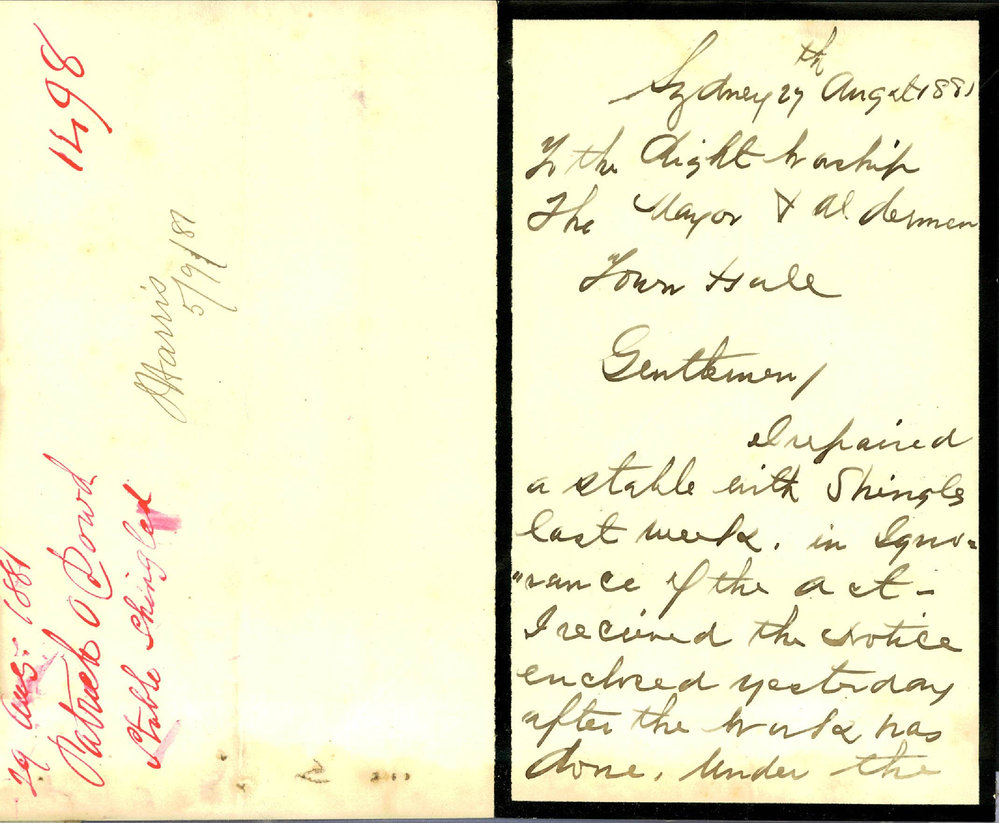 1498
J Harris
5/9/81
29 Aug: 1881
Patrick O'Dowd
Stable Shingled
Sydney 27th August 1881
To the Right Worship
The Mayor & Aldermen
Town Hall
Gentlemen/
I repaired
a stable with Shingles
last week. in Igno=
"rance of the act -
I recieved the Notice
enclosed yesterday
after the work was
done. Under the